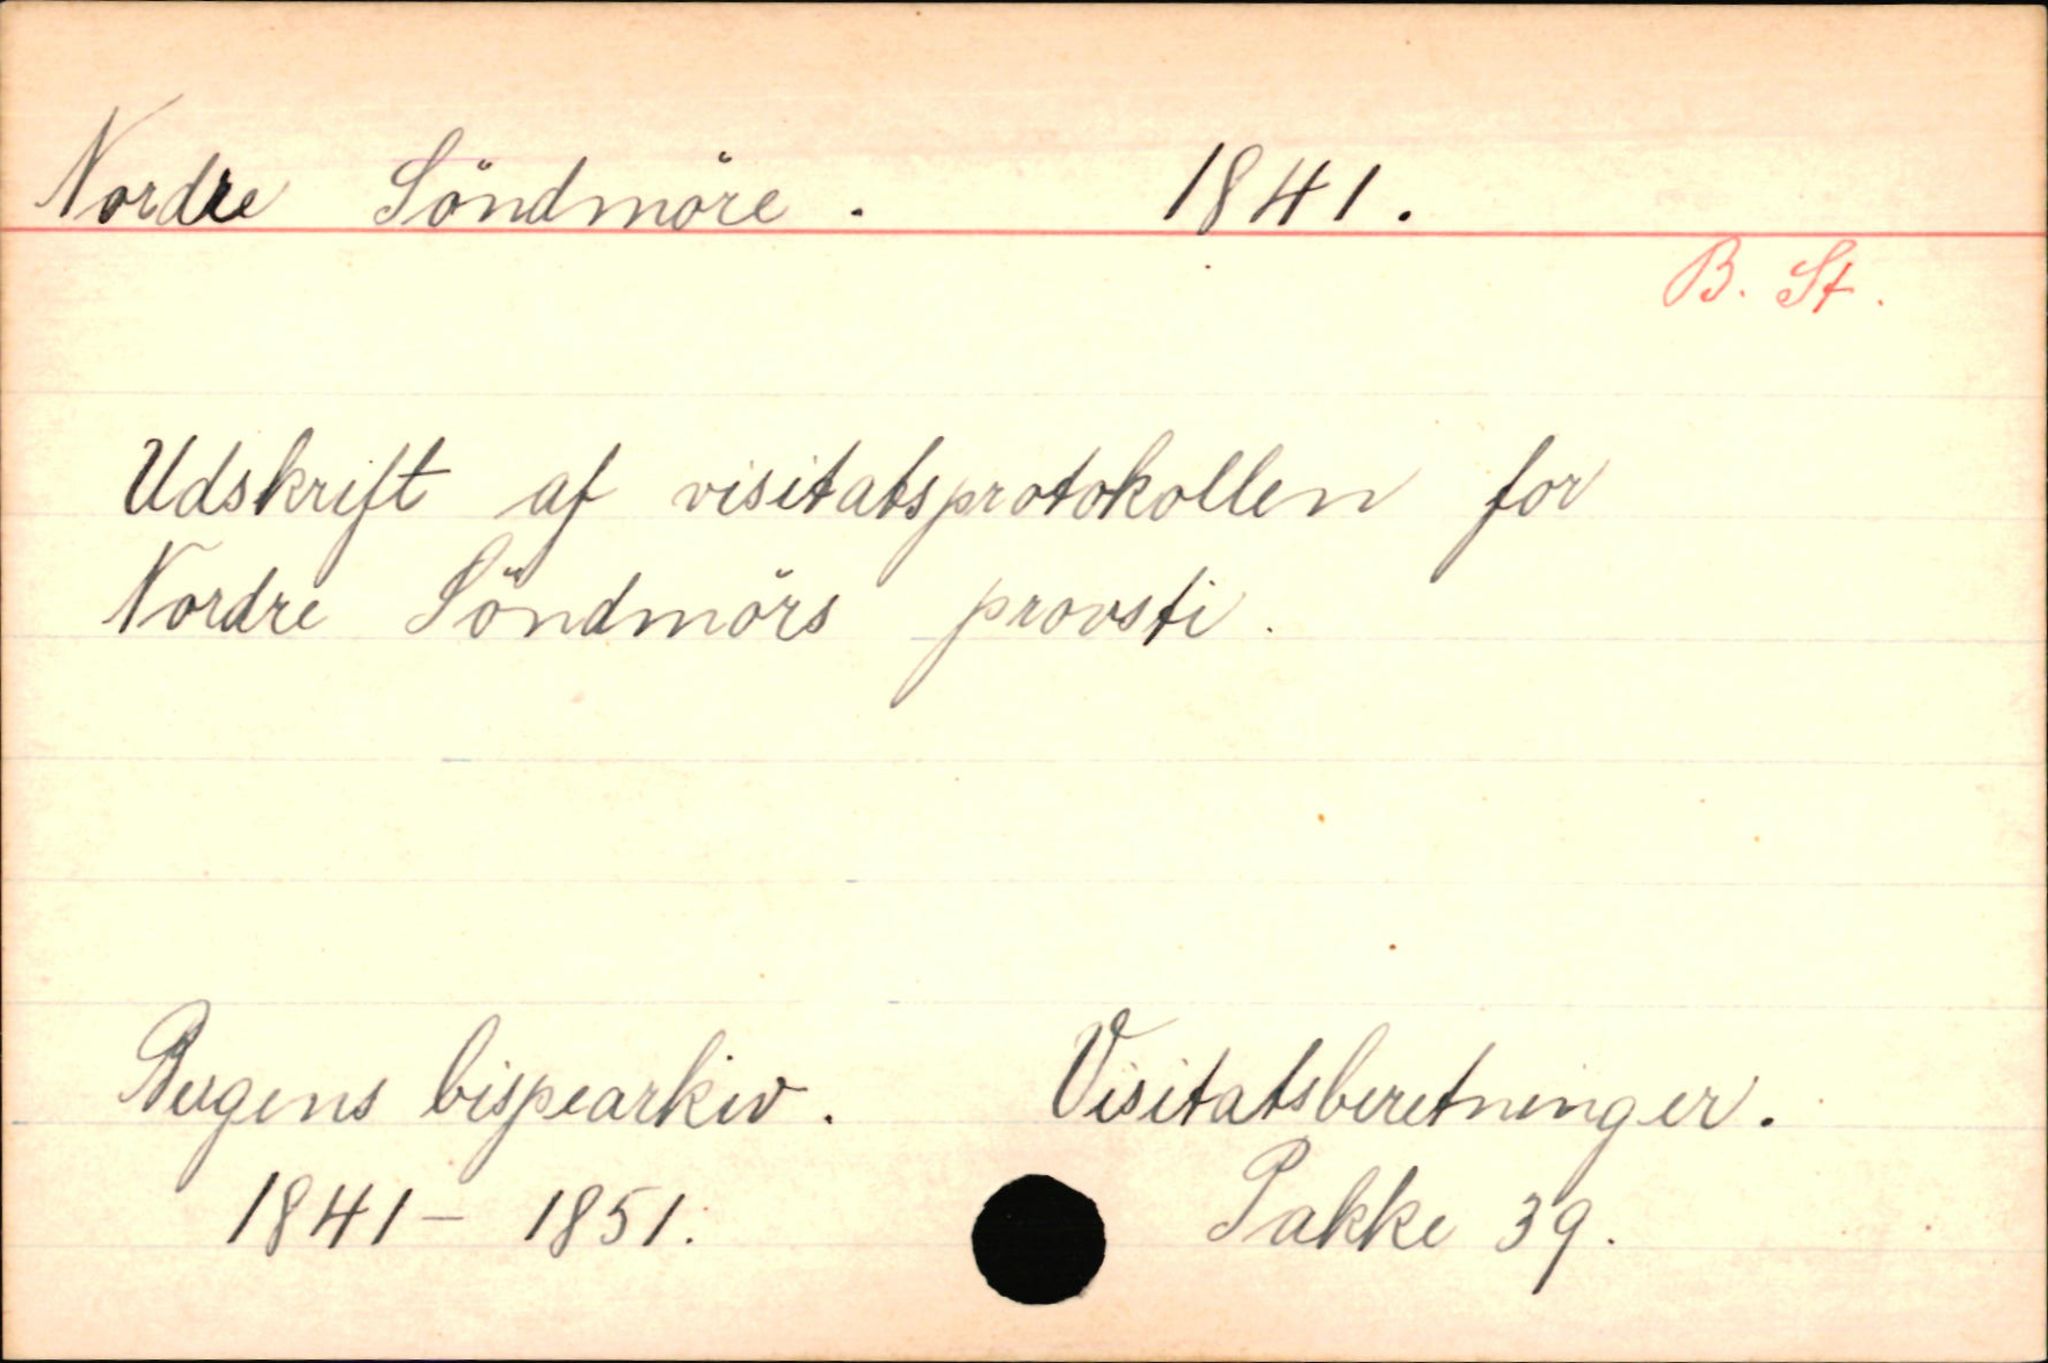 Nordre Söndmöre. 1841.
B. St.
Udskrift af visitatsprotokollen for
Nordre Söndmörs provsti.
Bergens bispearkiv. Visitatsberetninger.
1841-1851. Pakke 39.